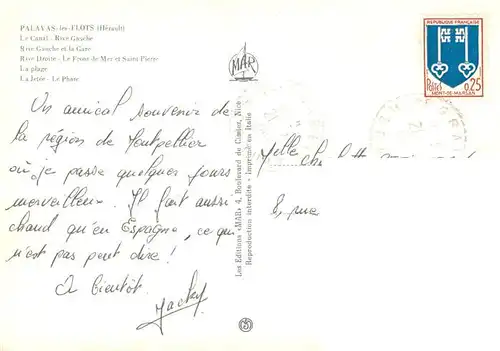 PALAVAS-les-FLOTS (Hérault)
Le Canal - Rive Gauche
Rive Gauche et la Gare
Rive Droite - Le Front de Mer et Saint Pierre
La plage
La Jetée - Le Phare
MAR
REPUBLIQUE FRANÇAISE
Postes 0,25
MONT-DE-MARSAN
Un amical souvenir de
la région de Montpellier
où je passe quelques jours
merveilleux. Il fait aussi
chaud qu'en Espagne, ce qui
n'est pas peut dire !
A bientôt.
Jacky
Les Editions «MAR» 4, Boulevard de Cimiez, Nice
Reproduction interdite - Imprimé en Italie
Melle
8, rue